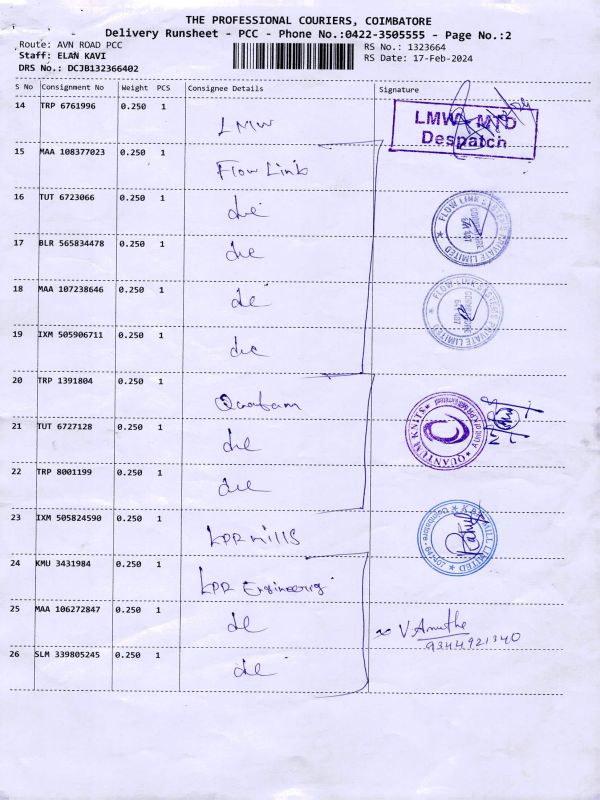 THE PROFESSIONAL COURIERS, COIMBATORE
Delivery Runsheet - PCC - Phone No.:0422-3505555 - Page No.:2
Route: AVN ROAD PCC
RS No.: 1323664
Staff: ELAN KAVI
RS Date: 17-Feb-2024
DRS No.: DCJB132366402
S No Consignment No Weight PCS Consignee Details Signature
14 TRP 6761996 0.250 1 LMW
LMW - MTD
Despatch
15 MAA 108377023 0.250 1 Flow Link
16 TUT 6723066 0.250 1
FLOW LINK SYSTEMS PRIVATE LIMITED
COIMBATORE
641 407
17 BLR 565834478 0.250 1
18 MAA 107238646 0.250 1
FLOW-LINK SYSTEMS PRIVATE LIMITED
COIMBATORE
641 407
19 IXM 505906711 0.250 1
20 TRP 1391804 0.250 1 Quantum
QUANTUM KNITS
21 TUT 6727128 0.250 1
22 TRP 8001199 0.250 1
23 IXM 505824590 0.250 1 KPR Mills
K.P.R. MILL LIMITED
Coimbatore - 641407
24 KMU 3431984 0.250 1 KPR Engineering
25 MAA 106272847 0.250 1
V Anuthe
9344921340
26 SLM 339805245 0.250 1